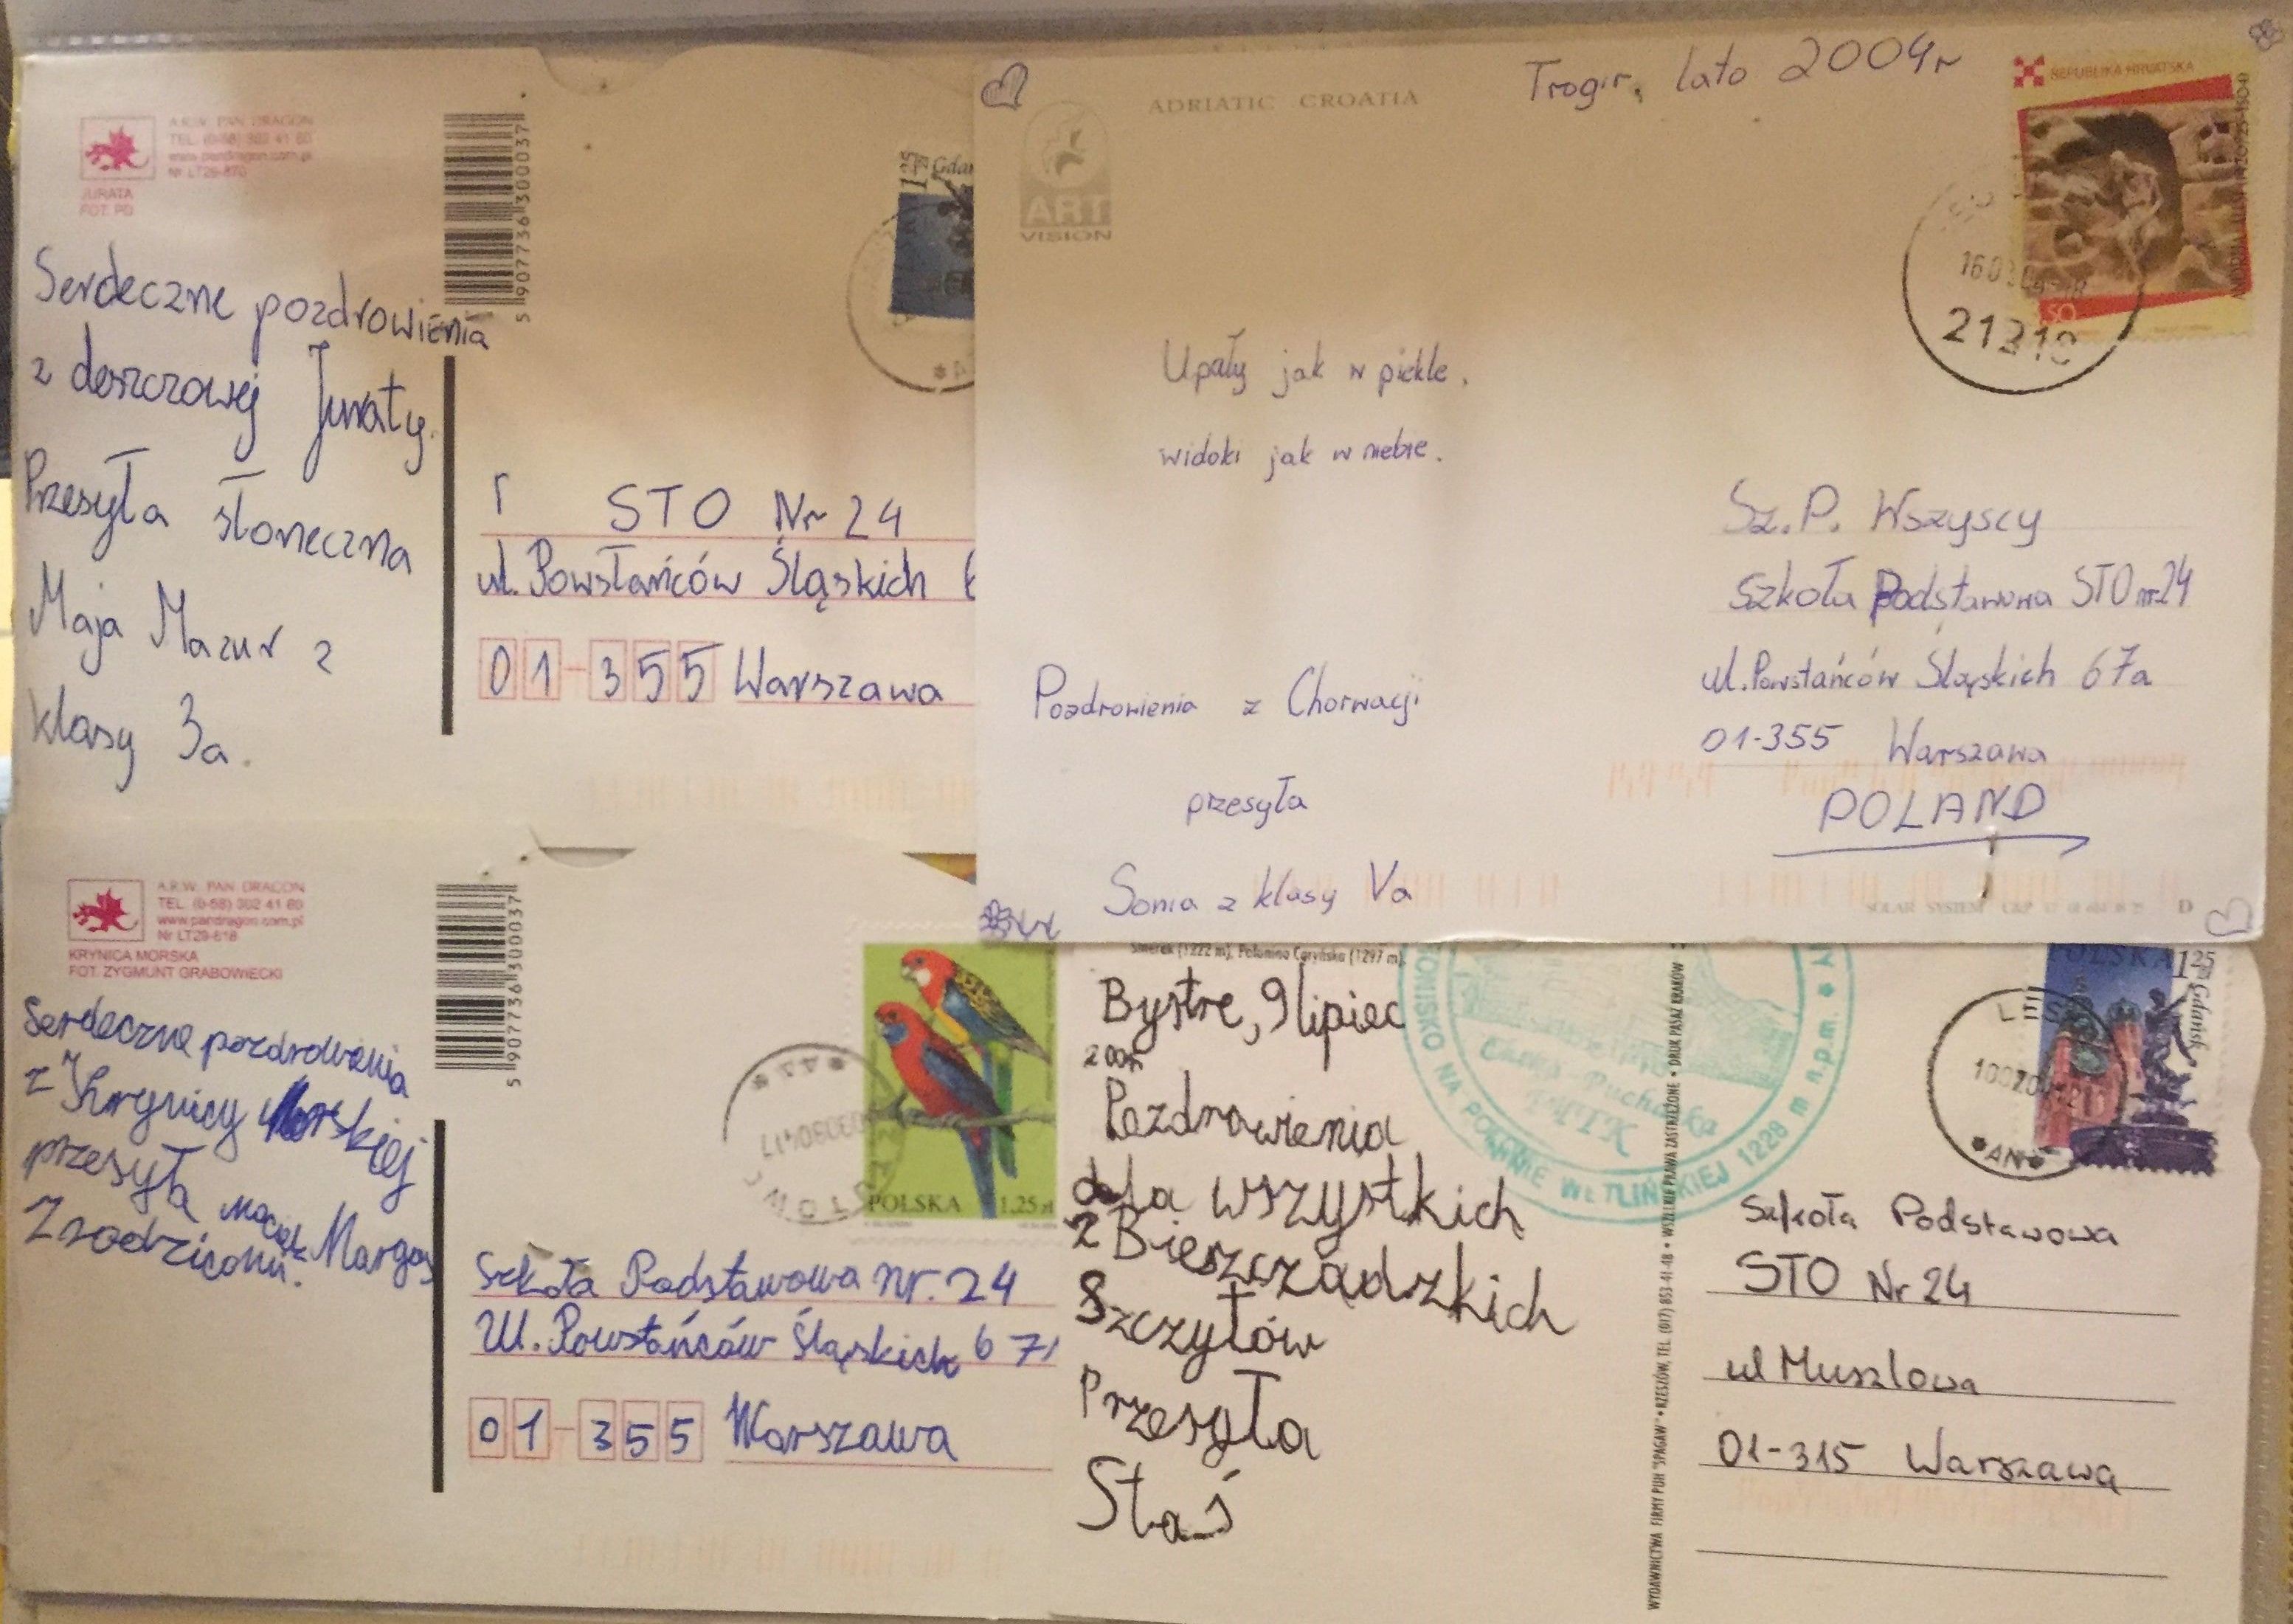 A.R.W. PAN DRAGON
TEL. (0-58) 302 41 60
www.pandragon.com.pl
Nr LT26-870
JURATA
FOT. PD
5 907736 300037
Serdeczne pozdrowienia
z deszczowej Juraty.
Przesyła słoneczna
Maja Mazur z
klasy 3a.
STO Nr 24
ul. Powstańców Śląskich 6
01-355 Warszawa
ADRIATIC CROATIA
Trogir, lato 2004r
ART
VISION
REPUBLIKA HRVATSKA
21210
Upały jak w piekle,
widoki jak w niebie.
Pozdrowienia z Chorwacji
przesyła
Sonia z klasy Va
Sz. P. Wszyscy
Szkoła Podstawowa STO nr 24
ul. Powstańców Śląskich 67a
01-355 Warszawa
POLAND
SOLAR SYSTEM
D
A.R.W. PAN DRAGON
TEL. (0-58) 302 41 60
www.pandragon.com.pl
Nr LT29-618
KRYNICA MORSKA
FOT. ZYGMUNT GRABOWIECKI
5 907736 300037
Serdeczne pozdrowienia
z Krynicy Morskiej
przesyła Maciek Margas
Z rodzicami.
POLSKA 1,25 zł
Szkoła Podstawowa nr. 24
Ul. Powstańców Śląskich 67
01-355 Warszawa
Smerek (1222 m), Połonina Caryńska (1297 m).
Bystre, 9 lipiec
2004
Pozdrowienia
dla wszystkich
z Bieszczadzkich
Szczytów
Przesyła
Staś
NA POŁONINIE WETLIŃSKIEJ 1228 m n.p.m.
PTTK
WYDAWNICTWA FIRMY PUH "SPAGAW" • RZESZÓW, TEL. (017) 853-41-48 • WSZELKIE PRAWA ZASTRZEŻONE • DRUK PASAŻ KRAKÓW
POLSKA 1,25
Gdańsk
Szkoła Podstawowa
STO Nr 24
ul Muszlowa
01-315 Warszawa